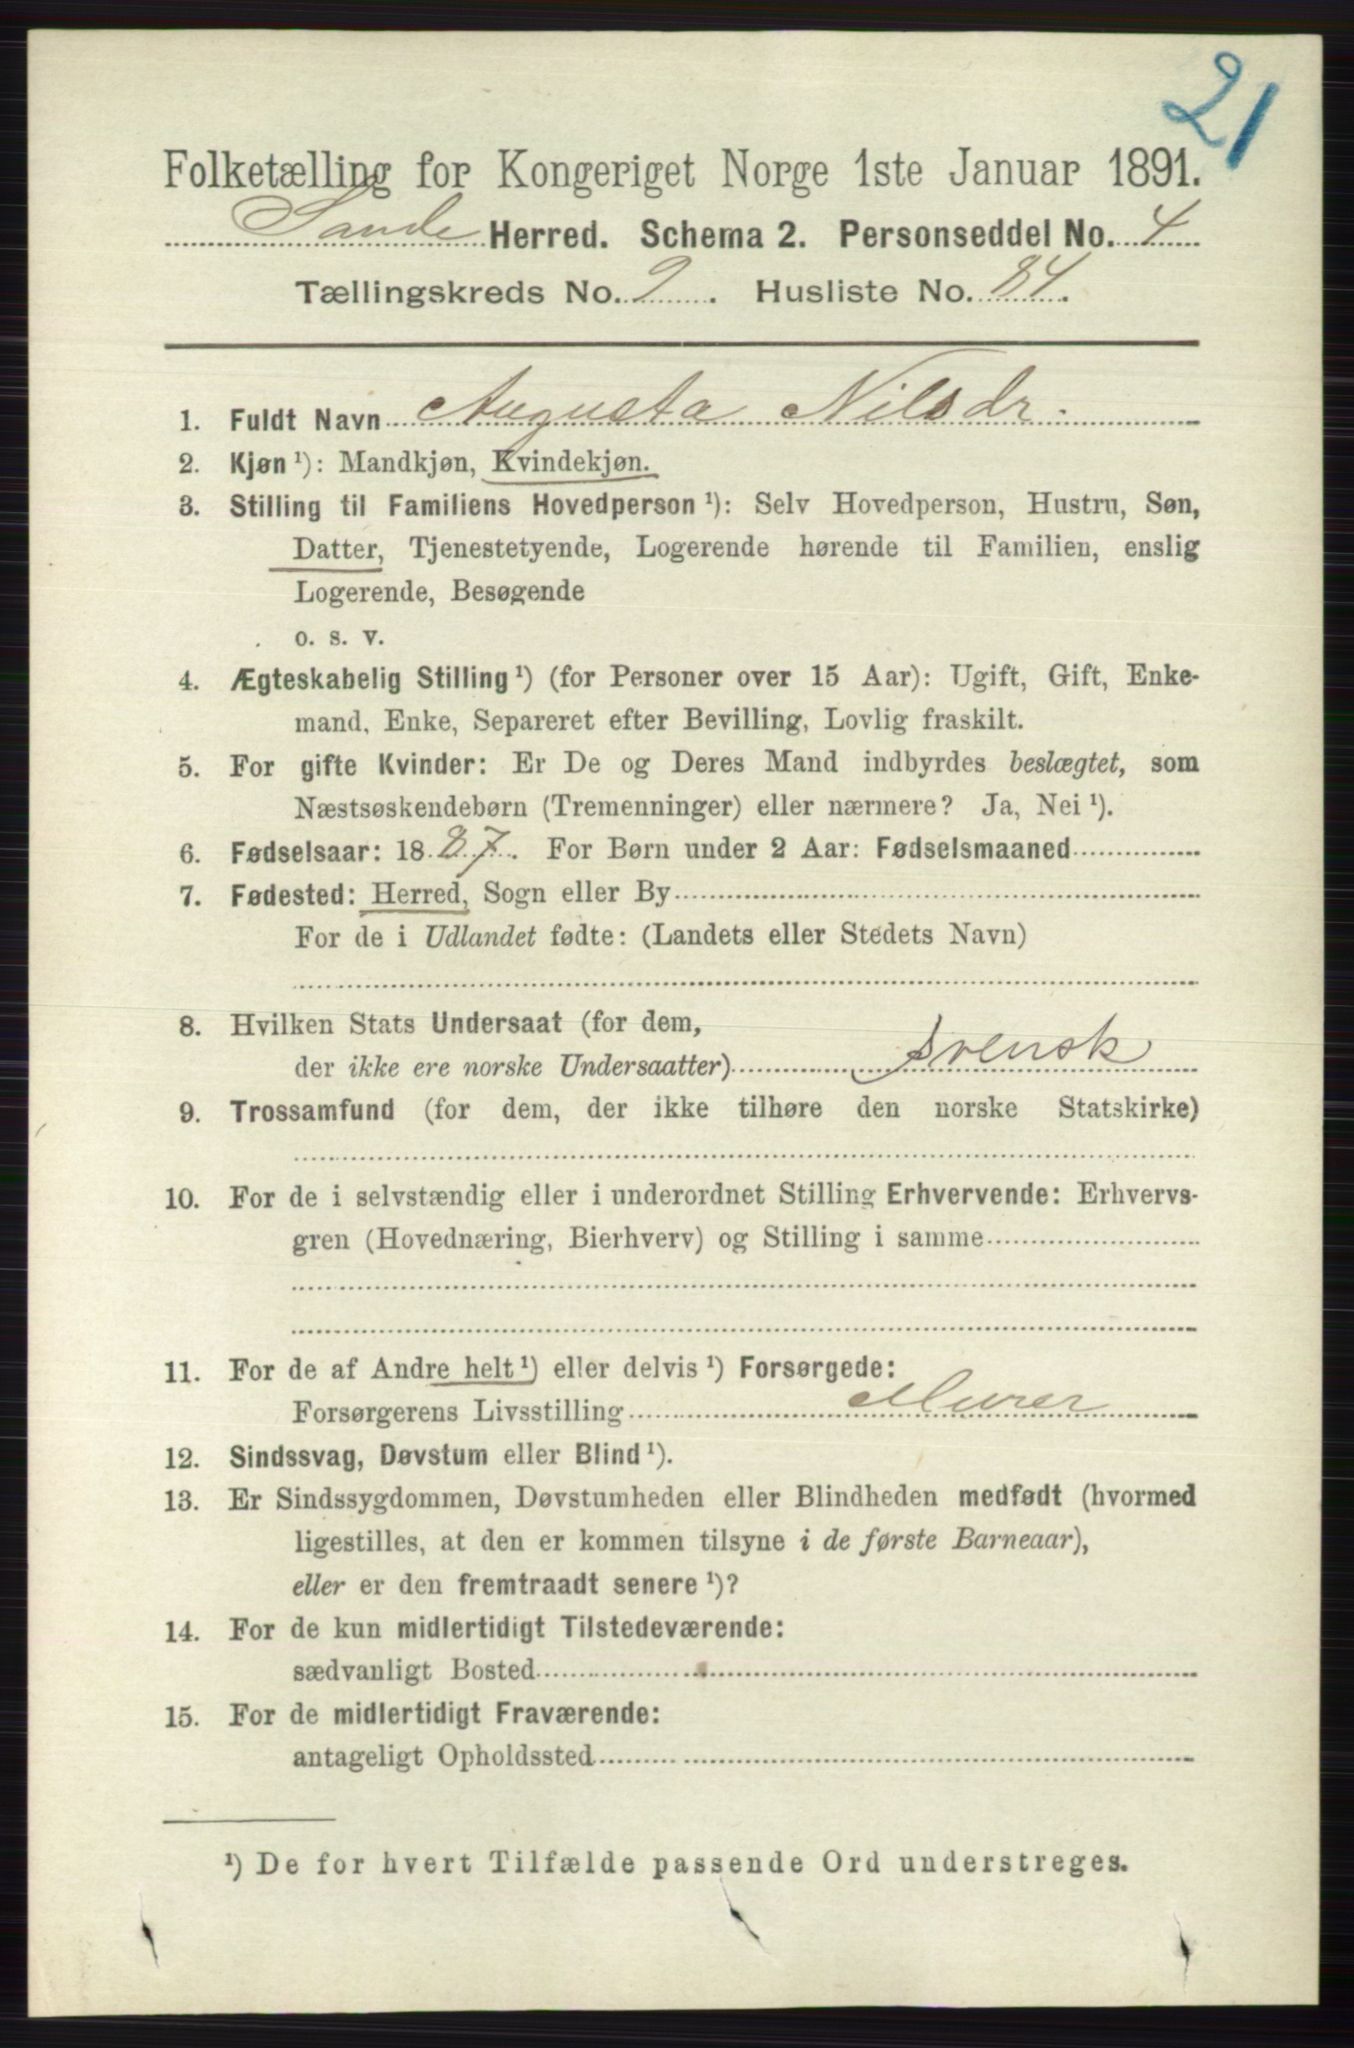 21
Folketælling for Kongeriget Norge 1ste Januar 1891.
Sande Herred. Schema 2. Personseddel No. 4
Tællingskreds No. 2. Husliste No. 84.
1. Fuldt Navn Augusta Nilsdr.
2. Kjøn ¹): Mandkjøn, Kvindekjøn.
3. Stilling til Familiens Hovedperson ¹): Selv Hovedperson, Hustru, Søn,
Datter, Tjenestetyende, Logerende hørende til Familien, enslig
Logerende, Besøgende
o. s. v.
4. Ægteskabelig Stilling ¹) (for Personer over 15 Aar): Ugift, Gift, Enke-
mand, Enke, Separeret efter Bevilling, Lovlig fraskilt.
5. For gifte Kvinder: Er De og Deres Mand indbyrdes beslægtet, som
Næstsøskendebørn (Tremenninger) eller nærmere? Ja, Nei ¹).
6. Fødselsaar: 1887. For Børn under 2 Aar: Fødselsmaaned
7. Fødested: Herred, Sogn eller By
For de i Udlandet fødte: (Landets eller Stedets Navn)
8. Hvilken Stats Undersaat (for dem,
der ikke ere norske Undersaatter) Svensk
9. Trossamfund (for dem, der ikke tilhøre den norske Statskirke)
10. For de i selvstændig eller i underordnet Stilling Erhvervende: Erhvervs-
gren (Hovednæring, Bierhverv) og Stilling i samme
11. For de af Andre helt ¹) eller delvis ¹) Forsørgede:
Forsørgerens Livsstilling Murer
12. Sindssvag, Døvstum eller Blind ¹).
13. Er Sindssygdommen, Døvstumheden eller Blindheden medfødt (hvormed
ligestilles, at den er kommen tilsyne i de første Barneaar),
eller er den fremtraadt senere ¹)?
14. For de kun midlertidigt Tilstedeværende:
sædvanligt Bosted
15. For de midlertidigt Fraværende:
antageligt Opholdssted
¹) De for hvert Tilfælde passende Ord understreges.